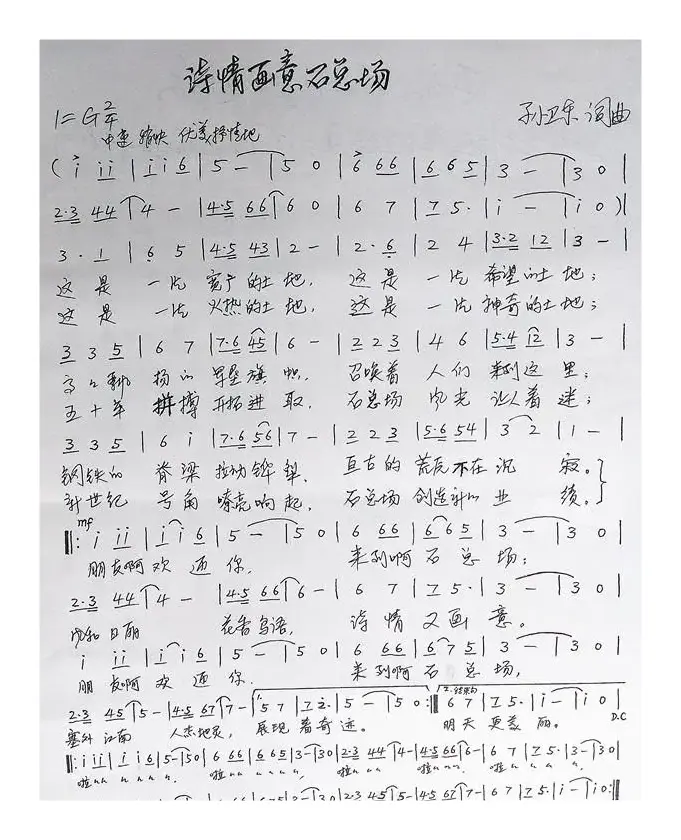 诗情画意石总场
1=G 2/4
孙卫东 词曲
中速 稍快 优美抒情地
( i ii | i i 6 | 5 - | 5 0 | 6 66 | 6 6 5 | 3 - | 3 0 |
2·3 44 | 4 - | 4·5 66 | 6 0 | 6 7 | 7 5· | i - | i 0 ) |
3 · 1 | 6 5 | 4·5 43 | 2 - | 2 · 6 | 2 4 | 3·2 12 | 3 - |
这是 一片 宽广的土地, 这是 一片 希望的土地;
这是 一片 火热的土地, 这是 一片 神奇的土地;
3 3 5 | 6 7 | 7·6 45 | 6 - | 2 2 3 | 4 6 | 5·4 12 | 3 - |
高高飘 扬的 军垦旗 帜, 召唤着 人们 来到这 里;
五十年 拼搏 开拓进 取, 石总场 风光 让人着 迷;
3 3 5 | 6 i | 7·6 56 | 7 - | 2 2 3 | 5·6 54 | 3 2 | 1 - |
钢铁的 脊梁 拉动铧 犁, 亘古的 荒原不在沉 寂。
新世纪 号角 嘹亮响 起, 石总场 创造新的 业 绩。
mf
‖: i ii | i i 6 | 5 - | 5 0 | 6 66 | 6 6 5 | 3 - | 3 0 |
朋友啊 欢 迎 你, 来到啊 石 总 场;
2·3 44 | 4 - | 4·5 66 | 6 - | 6 7 | 7 5· | 3 - | 3 0 |
风和日丽 花香鸟语, 诗情 又画 意。
i ii | i i 6 | 5 - | 5 0 | 6 66 | 6 7 5 | 3 - | 3 0 |
朋友啊 欢 迎 你, 来到啊 石 总 场,
1. 2.结束句
2·3 45 | 5 - | 4·5 67 | 7 - | 5 7 | 7 2· | 5 - | 5 0 :‖ 6 7 | 7 5· | i - | i 0 |
塞外江南 人杰地灵, 展现 着奇 迹。 明天 更美 丽。 D.C
‖: i ii | i i 6 | 5 - | 5 0 | 6 66 | 6 6 5 | 3 - | 3 0 | 2·3 44 | 4 - | 4·5 66 | 6 - | 6 7 | 7 5· | 3 - | 3 0 |
啦 啦 啦 啦 啦